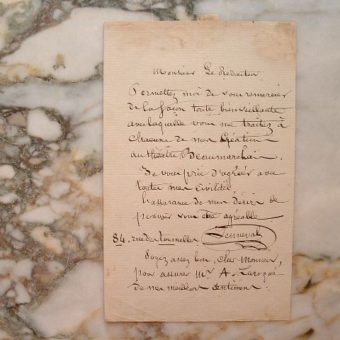 Monsieur Le Rédacteur
Permettez moi de vous remercier
de la façon toute bienveillante
avec laquelle vous me traitez à
chacune de mes Créations
au théâtre Beaumarchais.
Je vous prie d'agréer avec
toutes mes civilités,
l'assurance de mon désir de
pouvoir vous être agréable
84, rue des tournelles
Soyez assez bon, cher Monsieur,
pour assurer Mr A.
de mes meilleurs sentiments.